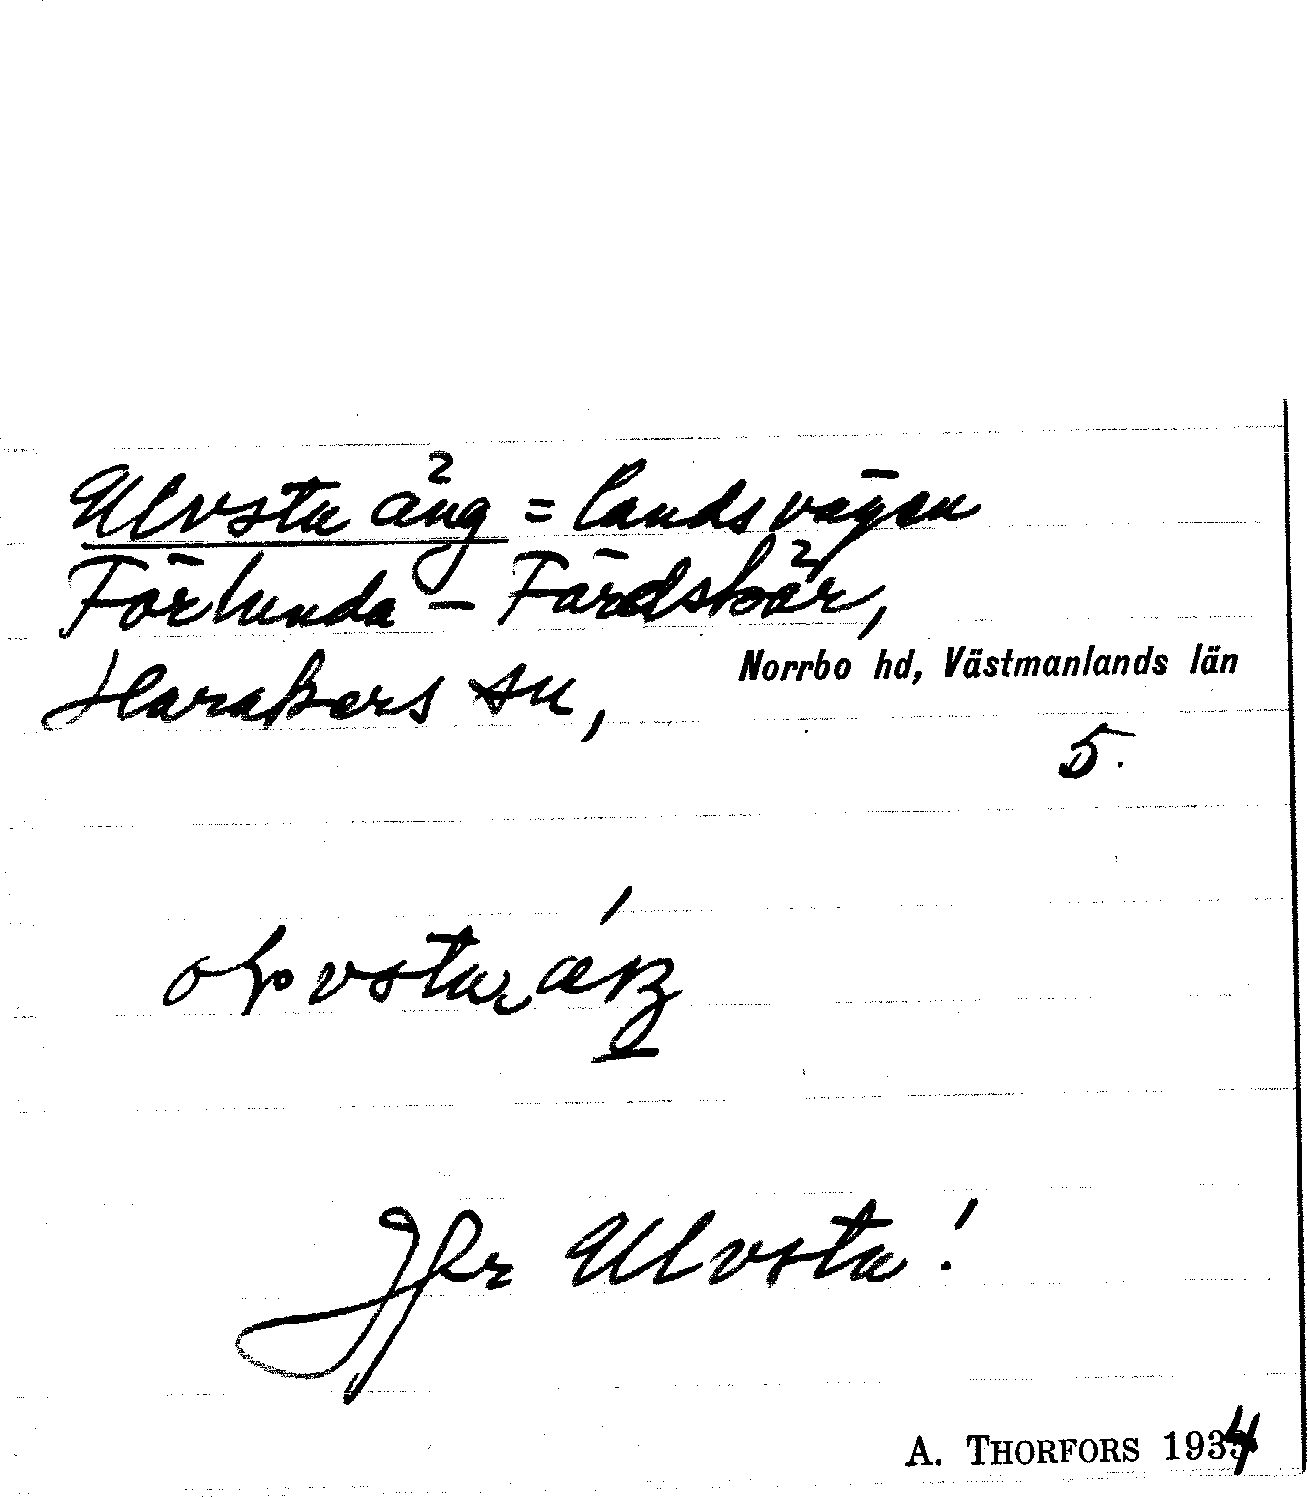 Ulvsta äng = landsvägen
Förlunda - Färdskär,
Harakers sn,
Norrbo hd, Västmanlands län
5.
Jfr Ulvsta!
A. THORFORS 1934